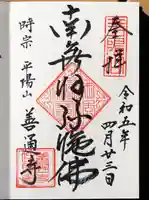 奉拝
令和五年
四月廿三日
南無阿弥陀佛
時宗 平陽山
善通寺